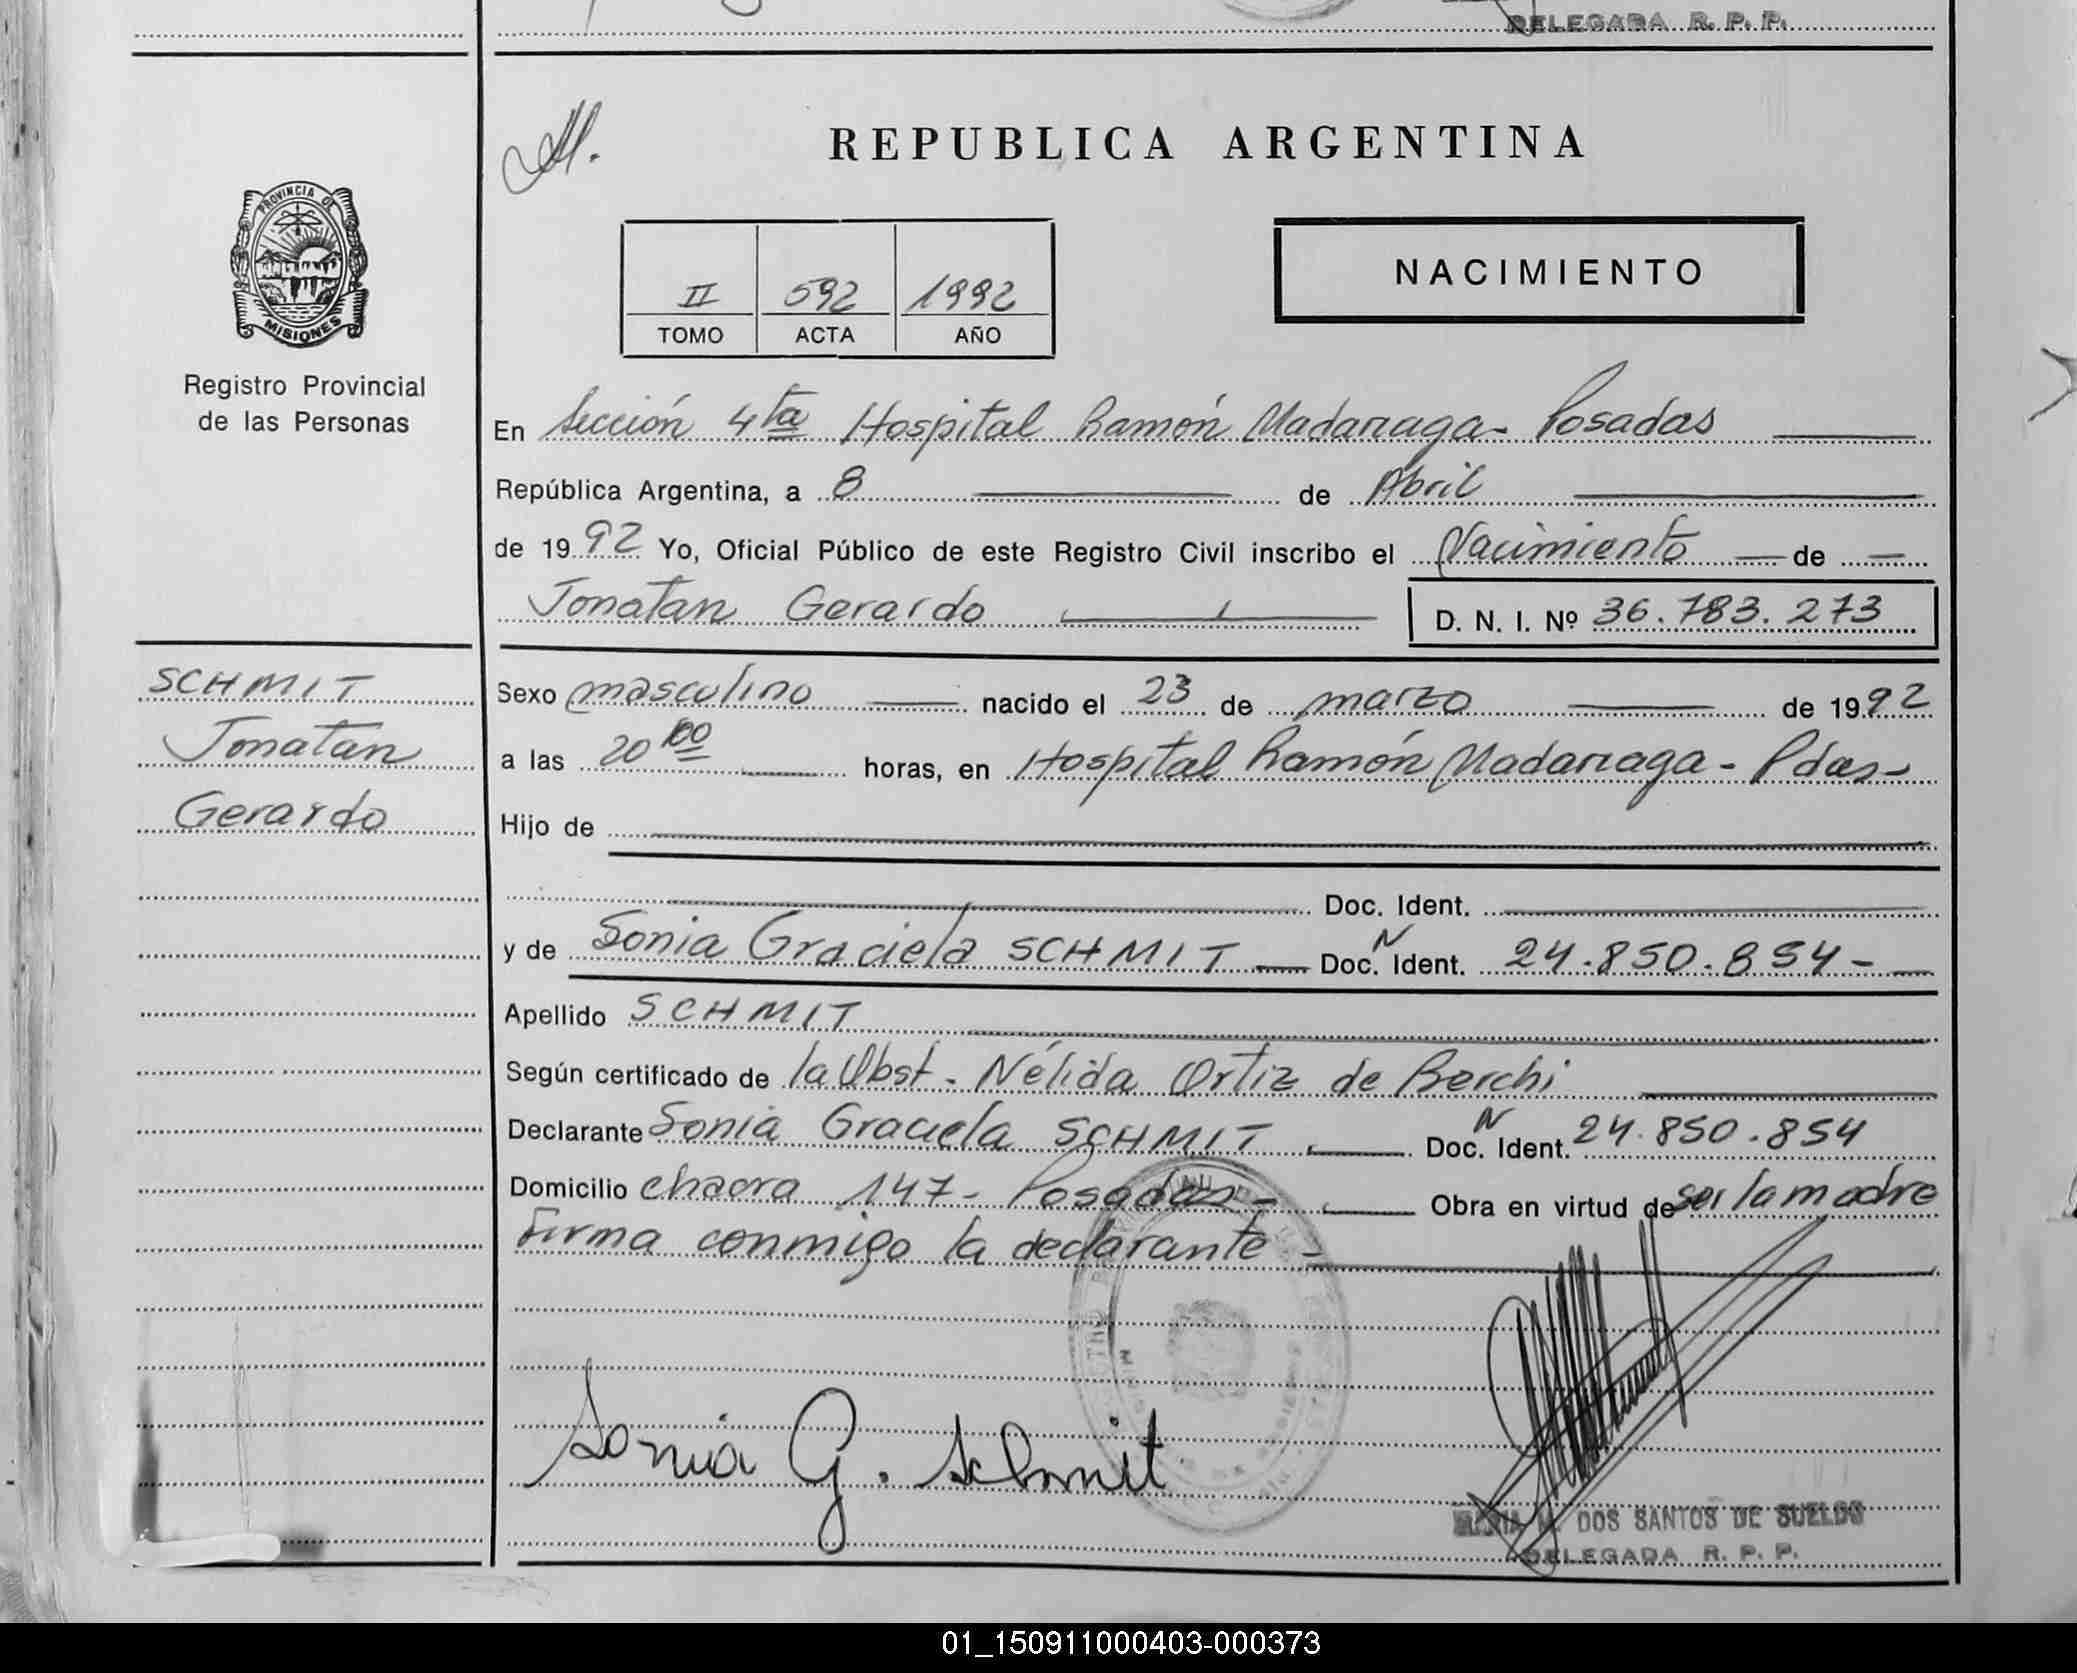 DELEGADA R. P. P.
PROVINCIA DE
MISIONES
Registro Provincial
de las Personas
REPUBLICA ARGENTINA
II 592 1992
TOMO ACTA AÑO
NACIMIENTO
En Sección 4ta Hospital Ramón Madariaga - Posadas
República Argentina, a 8 de Abril
de 1992 Yo, Oficial Público de este Registro Civil inscribo el Nacimiento de
Jonatan Gerardo D. N. I. Nº 36.783.273
SCHMIT
Jonatan
Gerardo
Sexo masculino nacido el 23 de marzo de 1992
a las 20 00 horas, en Hospital Ramón Madariaga - Pdas -
Hijo de
Doc. Ident.
y de Sonia Graciela SCHMIT Doc. N Ident. 24.850.854 -
Apellido SCHMIT
Según certificado de la Obst. Nélida Ortiz de Berchi
Declarante Sonia Graciela SCHMIT Doc. N Ident. 24.850.854
Domicilio chacra 147 - Posadas - Obra en virtud de ser la madre
Firma conmigo la declarante -
Sonia G. Schmit
DOS SANTOS DE SUELDO
DELEGADA R. P. P.
01_150911000403-000373